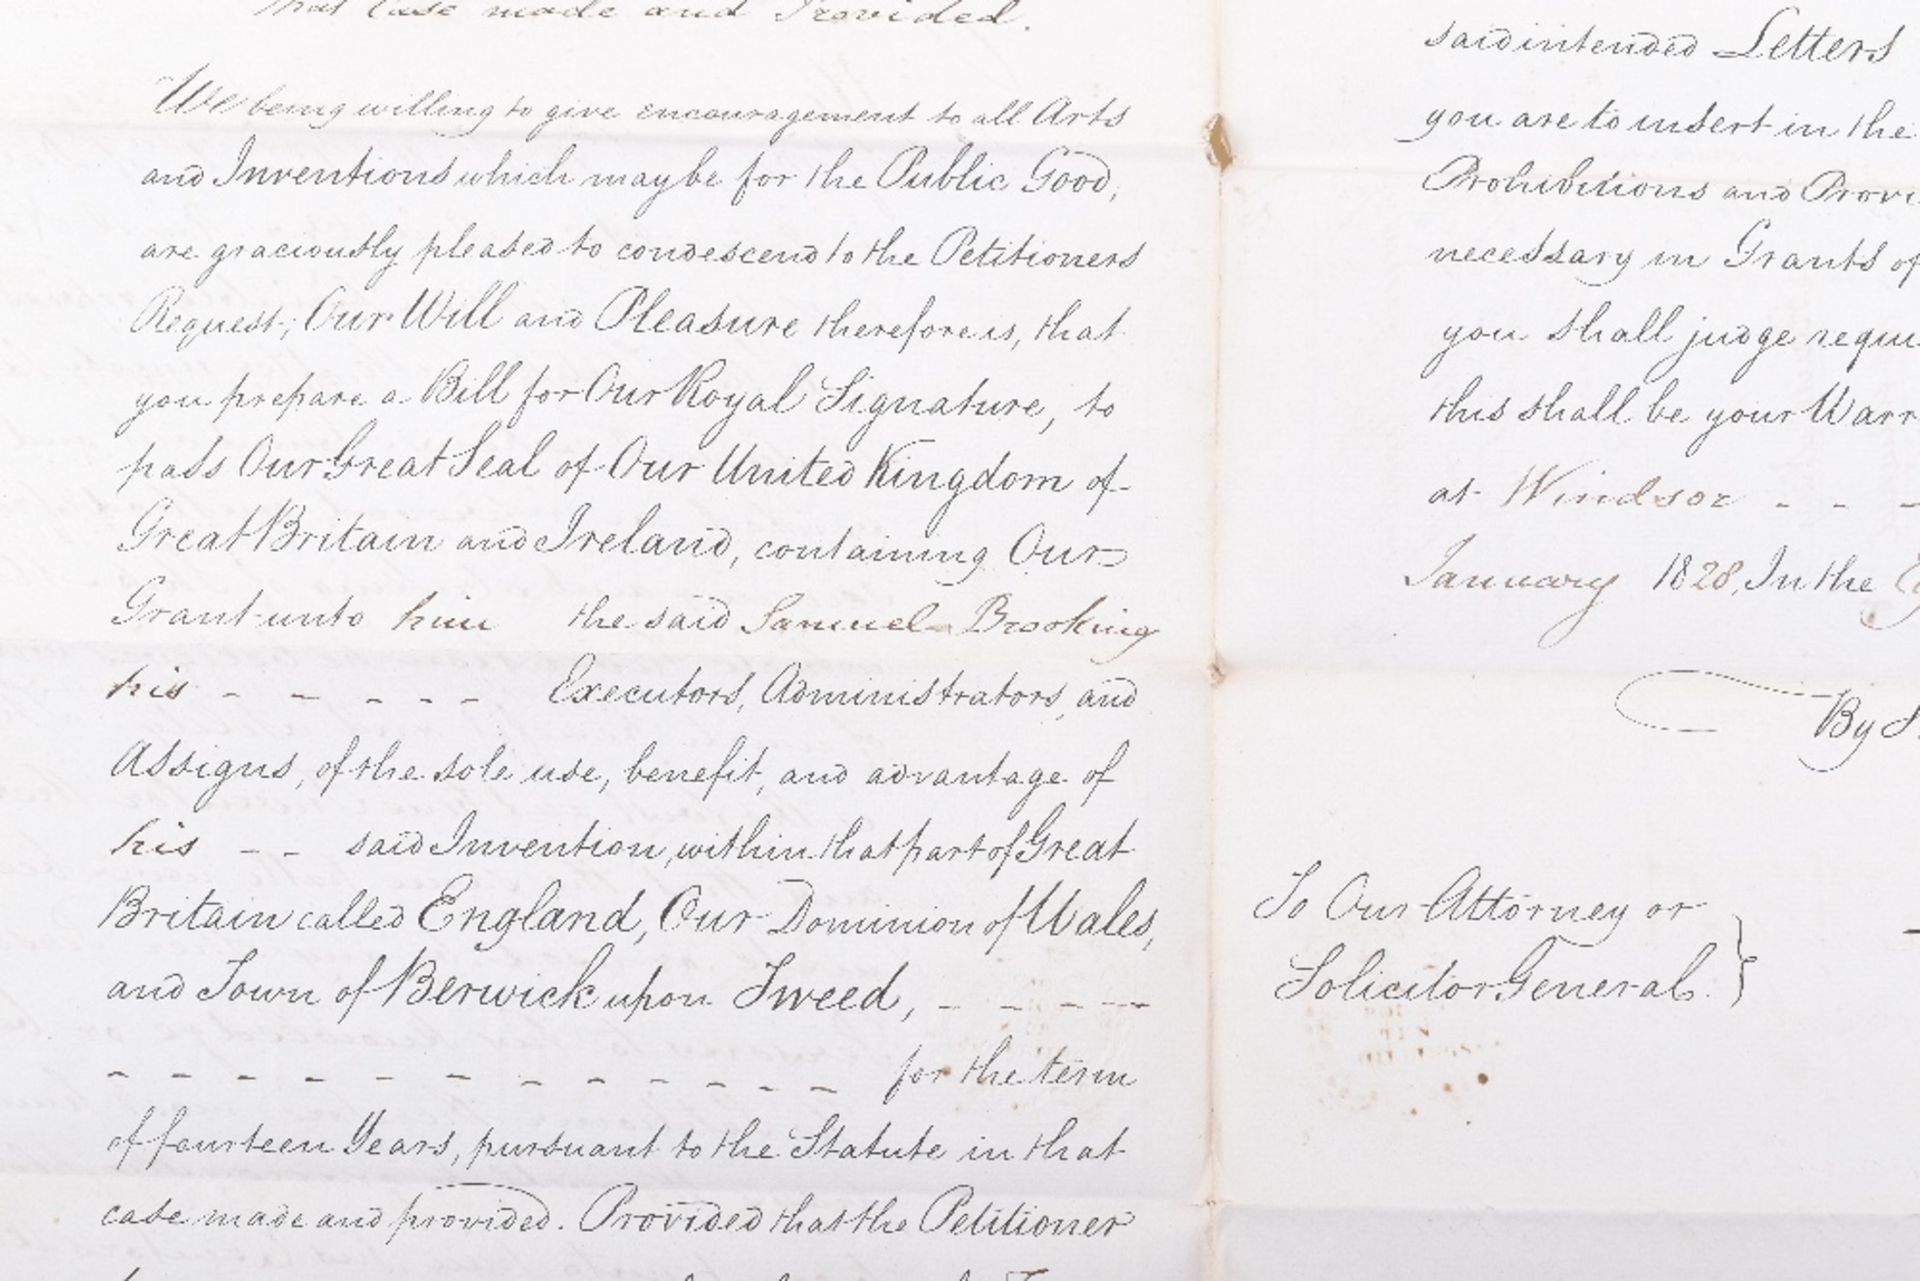 that Case made and Provided.
We being willing to give encouragement to all Arts
and Inventions which may be for the Public Good,
are graciously pleased to condescend to the Petitioners
Request; Our Will and Pleasure therefore is, that
you prepare a Bill for Our Royal Signature, to
pass Our Great Seal of Our United Kingdom of
Great Britain and Ireland, containing Our
Grant unto him the said Samuel Brooking
his - - - - - Executors, Administrators, and
Assigns, of the sole use, benefit, and advantage of
his - - said Invention, within that part of Great
Britain called England, Our Dominion of Wales,
and Town of Berwick upon Tweed, - - - - -
- - - - - - - - - - - for the term
of fourteen Years, pursuant to the Statute in that
case made and provided. Provided that the Petitioner
said intended Letters
you are to insert in the
Prohibitions and Provi
necessary in Grants of
you shall judge requi
this shall be your Warr
at Windsor - - -
January 1828, In the
By
To Our Attorney or
Solicitor General